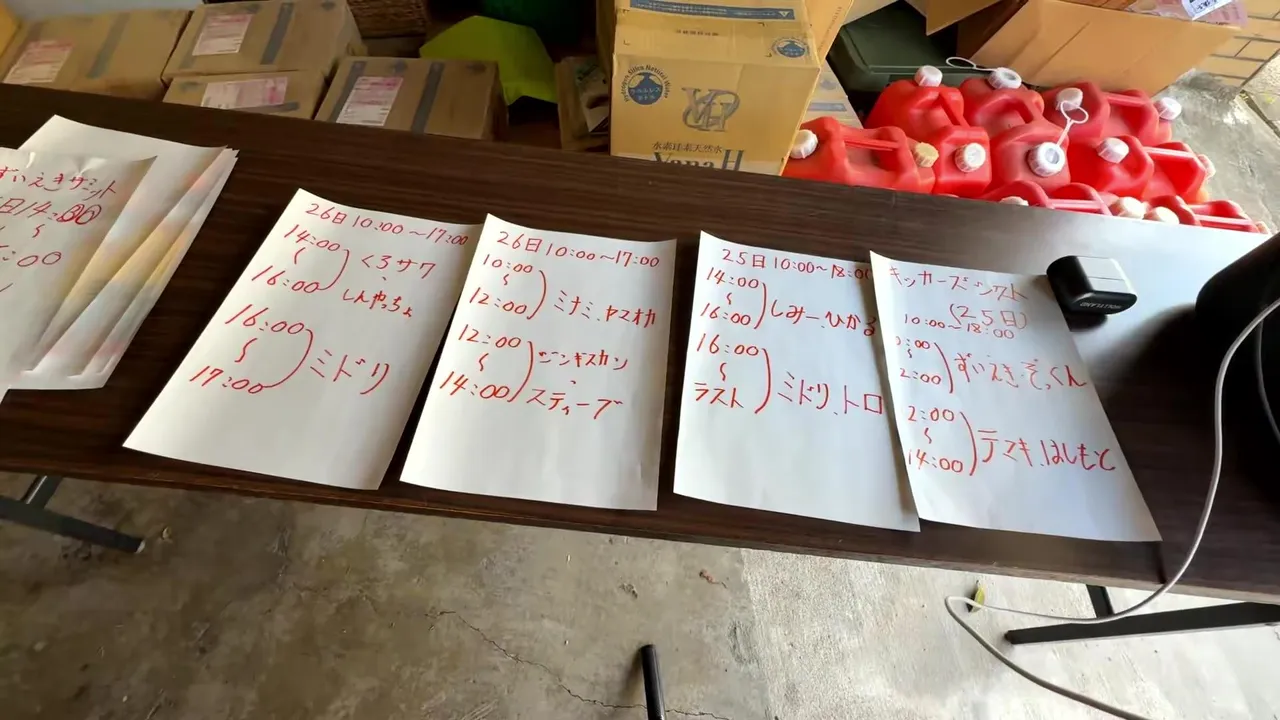 ずいえきサミット
日14:00
〜
:00
26日10:00〜17:00
14:00
〜
16:00
くろサワ
、
しんやっちょ
16:00
〜
17:00
ミドリ
26日10:00〜17:00
10:00
〜
12:00
ミナミ、ヤマオカ
12:00
〜
14:00
ジンギスカン
、
スティーブ
25日10:00〜18:00
14:00
〜
16:00
しみー、ひかる
16:00
〜
ラスト
ミドリ、トロ
キッカーズ
(25日)
10:00〜18:00
:00
〜
2:00
ずいえきぞっくん
2:00
〜
14:00
テマキ、はしもと
水素珪素天然水
VanaH